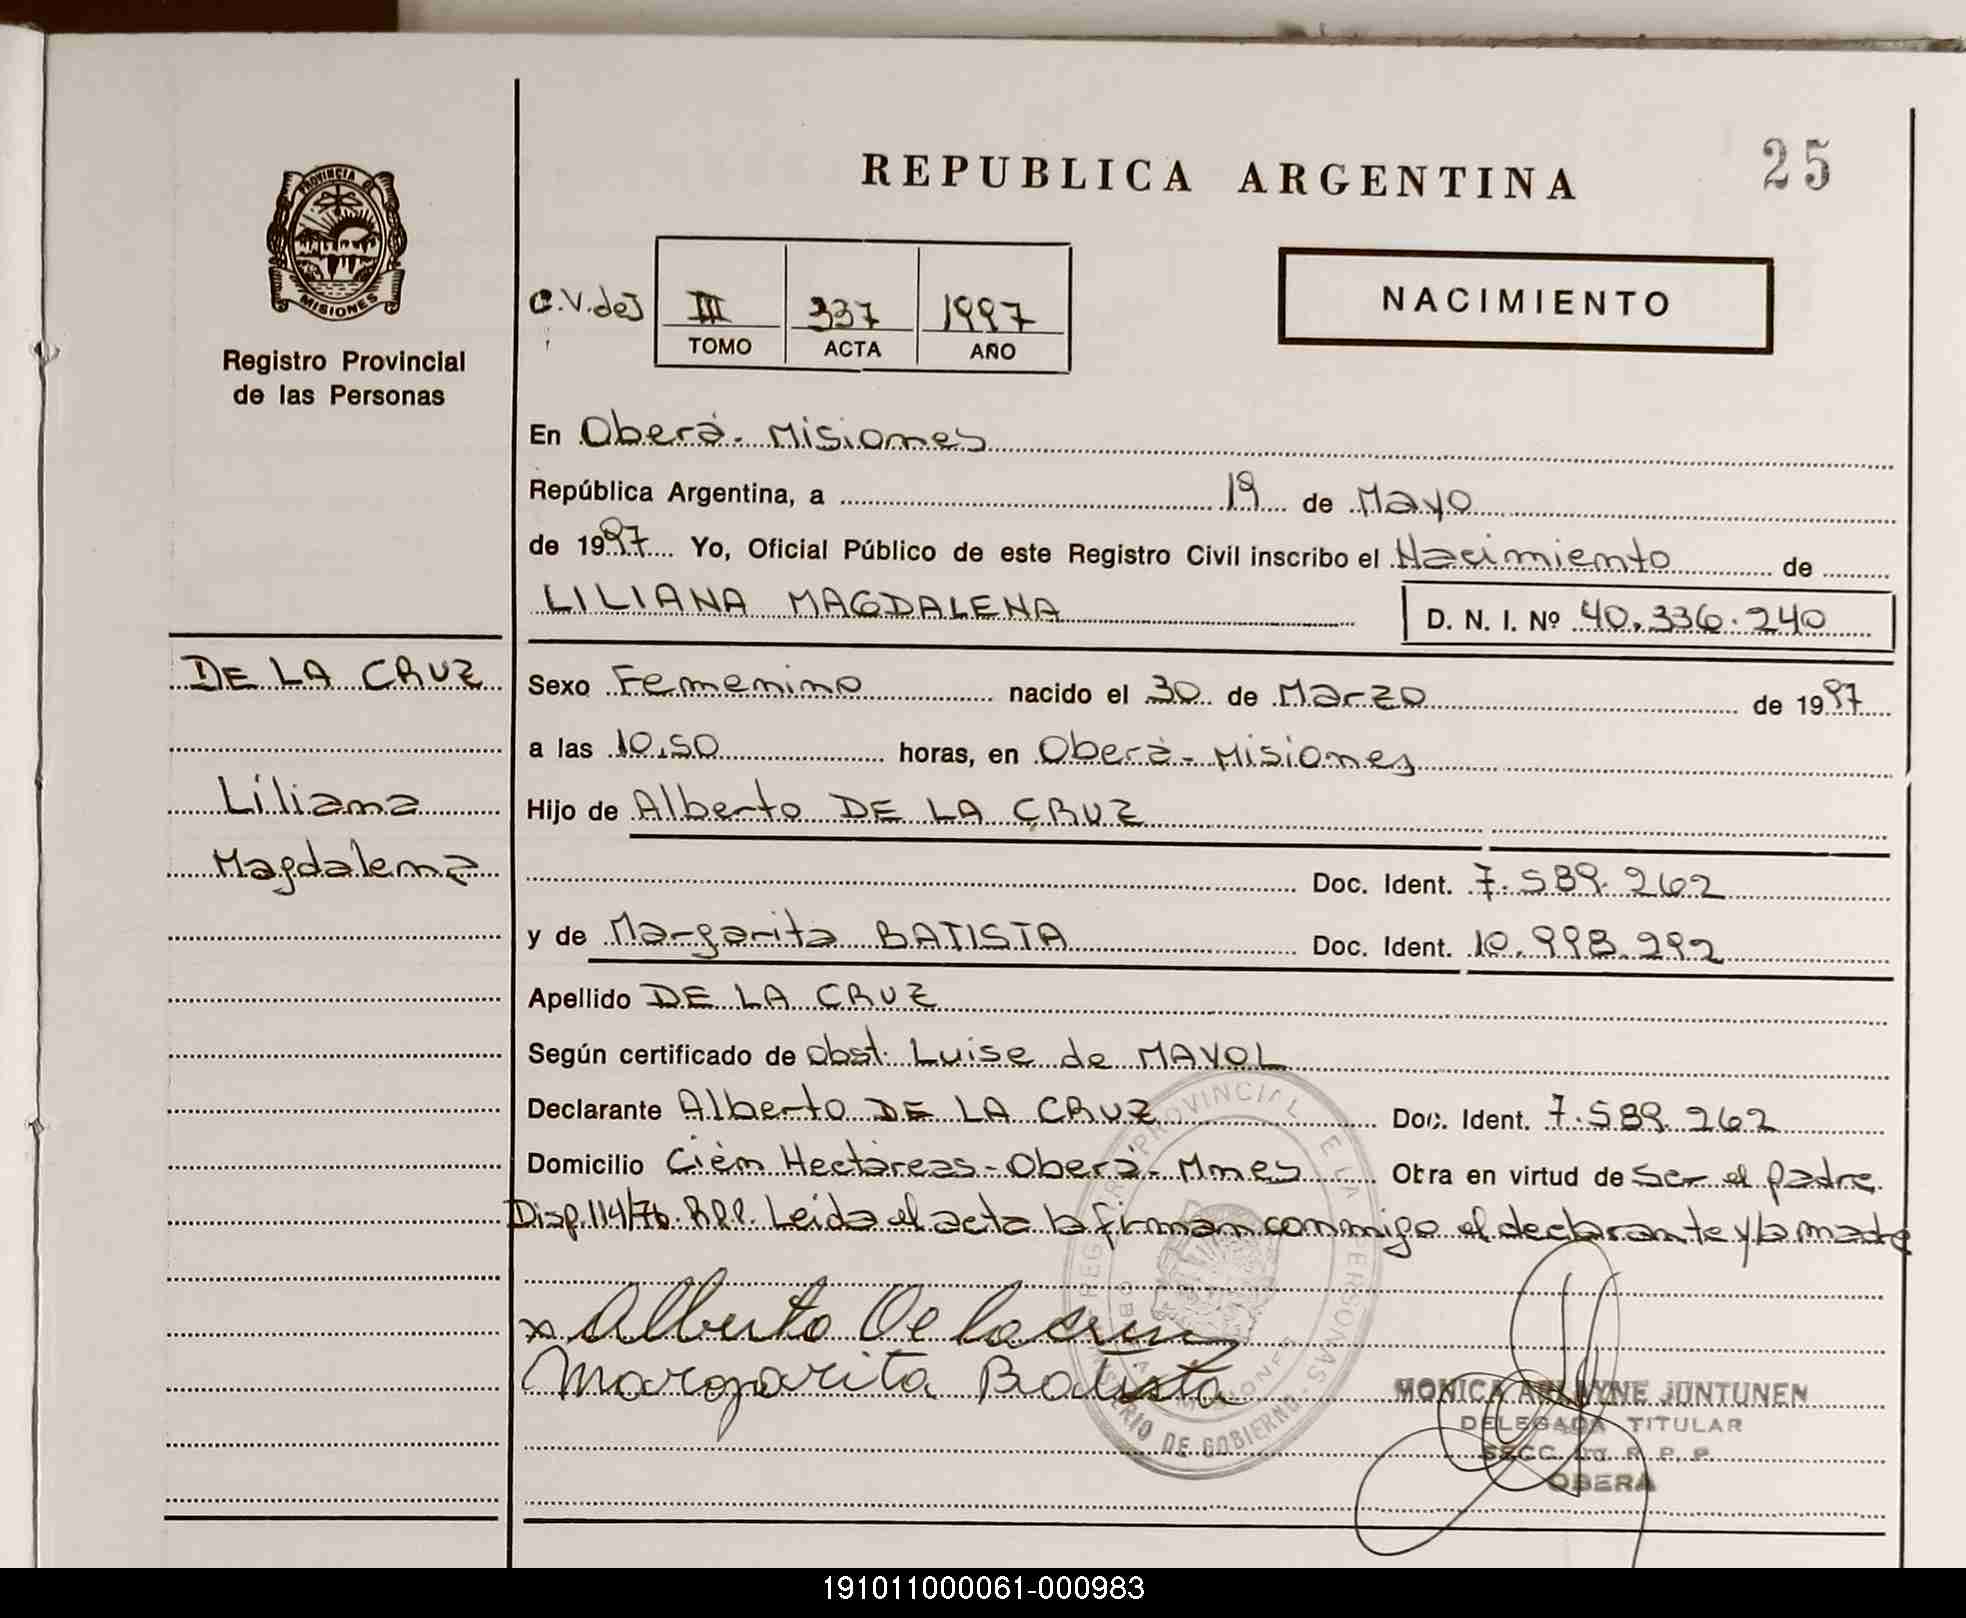 REPUBLICA ARGENTINA
25
PROVINCIA DE
MISIONES
Registro Provincial
de las Personas
C.V. de J
III 337 1997
TOMO ACTA AÑO
NACIMIENTO
En Oberá - Misiones
República Argentina, a 19 de Mayo
de 1997 Yo, Oficial Público de este Registro Civil inscribo el Nacimiento de
LILIANA MAGDALENA
D. N. I. Nº 40.336.240
DE LA CRUZ
Liliana
Magdalena
Sexo Femenino nacido el 30 de Marzo de 1997
a las 10.50 horas, en Oberá - Misiones
Hijo de Alberto DE LA CRUZ
Doc. Ident. 7.589.262
y de Margarita BATISTA Doc. Ident. 10.998.292
Apellido DE LA CRUZ
Según certificado de obst. Luise de MAYOL
Declarante Alberto DE LA CRUZ Doc. Ident. 7.589.262
Domicilio Cién Hectáreas - Oberá - Mnes Obra en virtud de Ser el padre
Disp. 114/76. R.P.P. Leida el acta la firman conmigo el declarante y la madre
x Alberto De la cruz
Margarita Batista
REGISTRO PROVINCIAL DE LAS PERSONAS
MINISTERIO DE GOBIERNO
MISIONES
MONICA JUNTUNEN
DELEGADA TITULAR
SECC. R. P. P.
OBERA
191011000061-000983